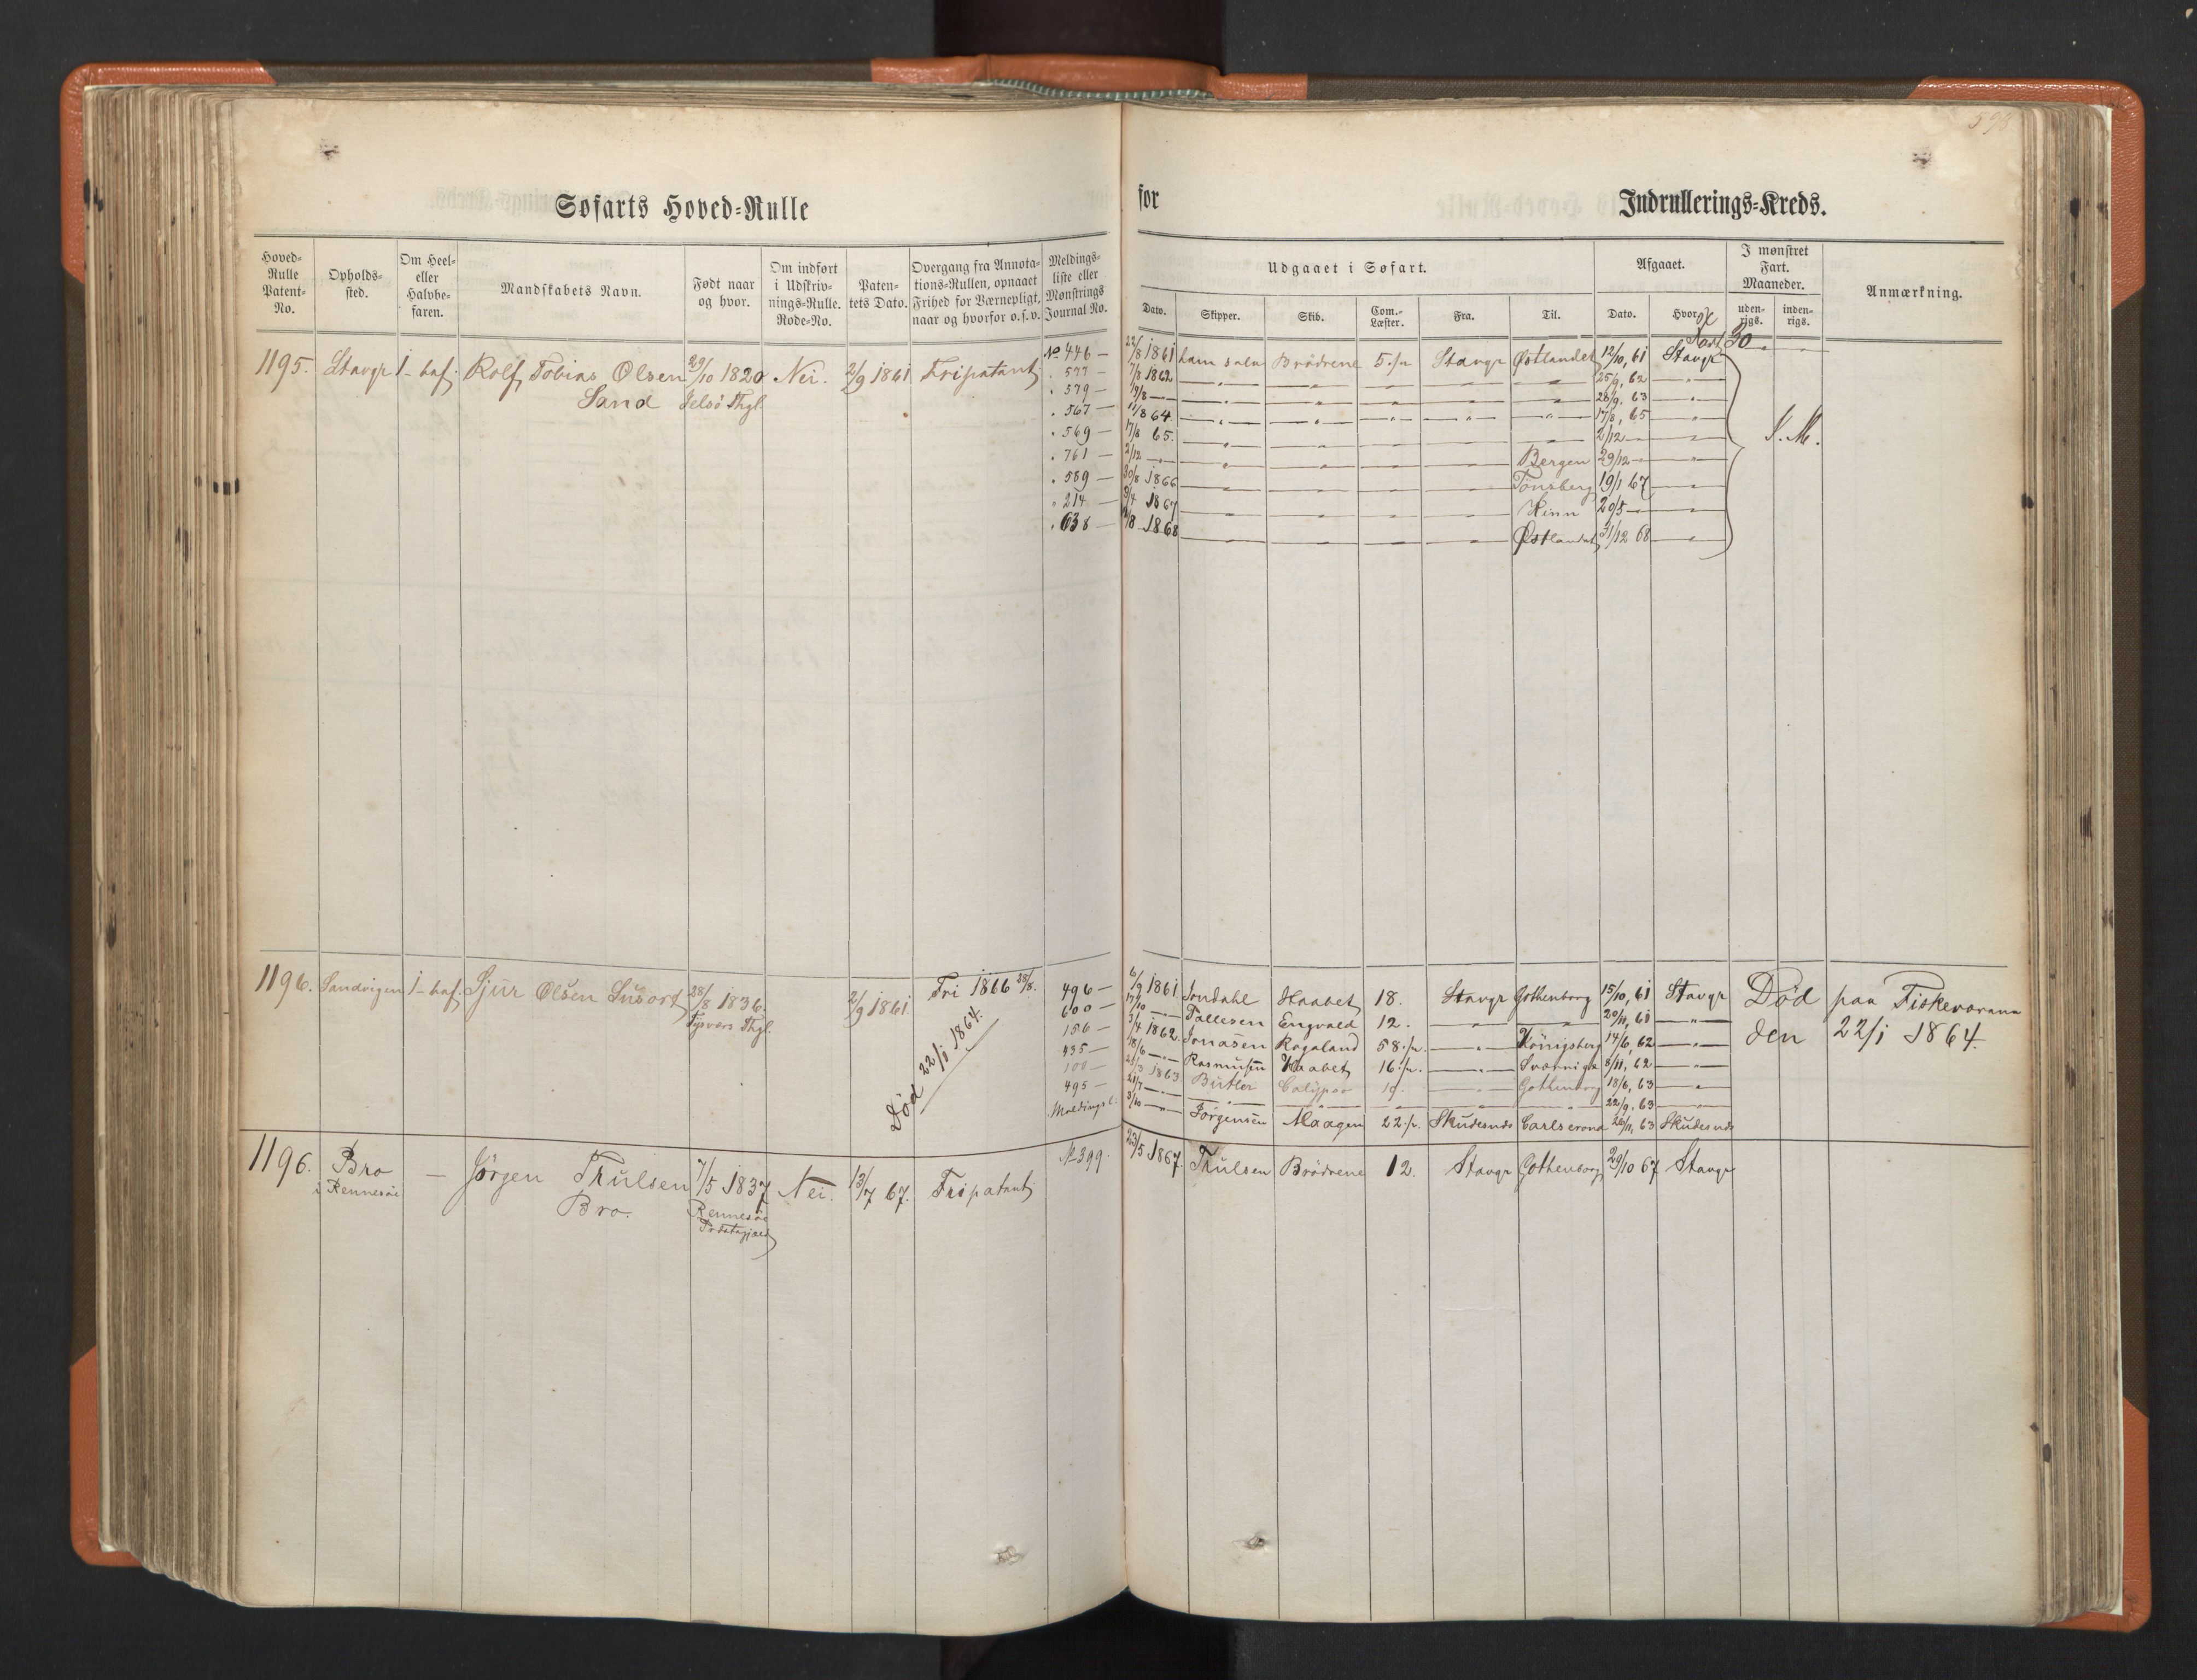 Søfarts Hoved-Rulle
for
Indrullerings-Kreds.
Hoved-Rulle Patent-No.
Opholds-sted.
Om Heel- eller Halvbe-faren.
Mandskabets Navn.
Født naar og hvor.
Om indført i Udskriv-nings-Rulle. Rode-No.
Paten-tets Dato.
Overgang fra Annota-tions-Rullen, opnaaet Frihed for Værnepligt, naar og hvorfor o.s.v.
Meldings-liste eller Mønstrings Journal No.
Udgaaet i Søfart.
Afgaaet.
I mønstret Fart. Maaneder.
Anmærkning.
Dato.
Skipper.
Skib.
Com.-Læster.
Fra.
Til.
Dato.
Hvor.
uden-rigs.
inden-rigs.
1195. Stavgr 1-baf. Rolf Tobias Olsen 29/10 1820 Nei. 2/9 1861 Fripatent No 446 — 22/8 1861 ham selv Brödrene 5 Stavgr Østlandet 12/10, 61 Stavgr 30
Sand Jelsö Thgl.
577 — 7/8 1862 25/9, 62
579 — 28/9, 63
567 — 11/8 64. 17/8, 65
569 — 17/8 65. 2/12 S. M.
761 — 2/12 Bergen 29/12
589 — 30/8 1866 Tönsberg 19/1 67
214 — 9/4 1867 Kinn 20/5
638 — 1868 Østlandet 31/12 68
1196. Sandvigen 1-baf. Sjur Olsen 28/8 1836. 2/9 1861 Fri 1866 28/8. 496 — 6/9 1861 Haabet 18. Stavgr Gothenborg 15/10, 61 Stavgr Död paa
Tysvers Thgl. 600 — 17/10 Tallesen Engvald 12. 20/11, 61 den 22/1 1864.
Död 22/1 1864.
156 — 3/4 1862. Jonasen Rogaland 58 Königsberg 14/6, 62
435 — 18/6 Rasmusen Haabet 16 8/11, 62
100 — 1863 Butler Calypso 19. Gothenborg 18/6, 63
495 — 21/7 22/9, 63
Meldingsl: 3/10 Jörgensen Maagen 22 Skudesnds Carlscrona 26/11, 63 Skudesnds
1196. Bro — Jörgen Thulsen 7/5 1837 Nei. 13/7 67. Fripatent No 399. 23/5 1867. Thulsen Brödrene 12. Stavgr Gothenborg 29/10 67 Stavgr
i Rennesöe Bro. Rennesöe
Præstegjæld